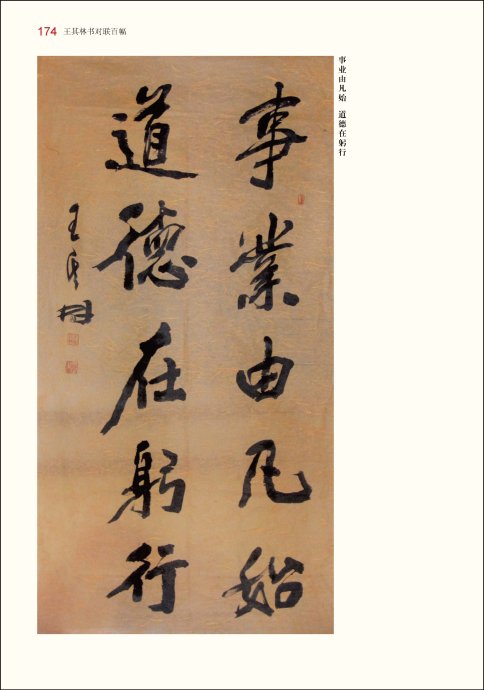 174 王其林书对联百幅
事业由凡始 道德在躬行
事業由凡始
道德在躬行
王其林